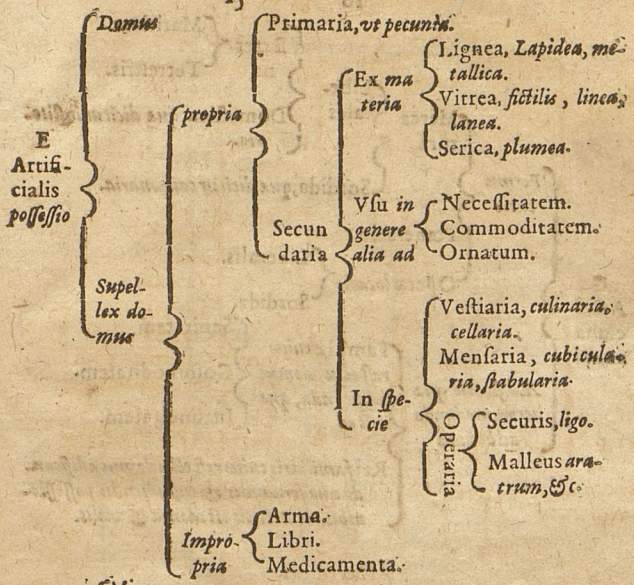 E
Artifi-
cialis
poſſeſſio
Domus
Supel-
lex do-
mus
propria
Primaria, vt pecunia.
Secun
daria
Ex ma
teria
Lignea, Lapidea, me-
tallica.
Vitrea, fictilis, linea,
lanea.
Serica, plumea.
Vſu in
genere
alia ad
Neceſſitatem.
Commoditatem.
Ornatum.
In ſpe-
cie
Veſtiaria, culinaria,
cellaria.
Menſaria, cubicula-
ria, ſtabularia.
Operaria
Securis, ligo.
Malleus ara-
trum, &c.
Impro-
pria
Arma.
Libri.
Medicamenta.